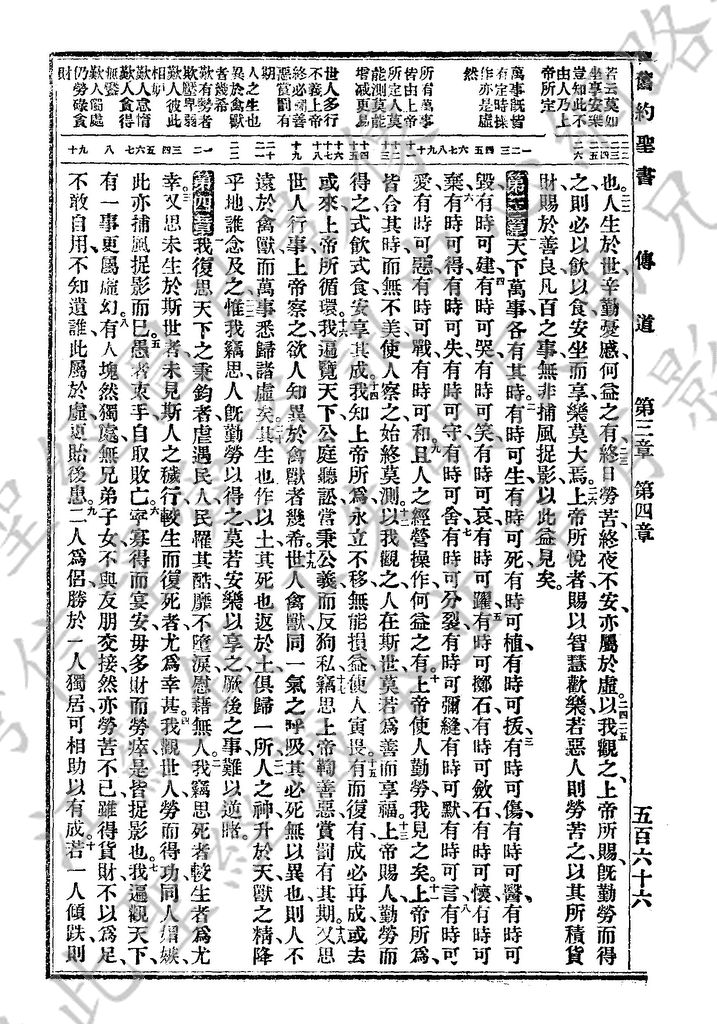 舊約聖書 傳道 第三章 第四章 五百六十六
若云莫如
坐享安樂
豈知此不
由人乃上
帝所定
萬事既皆
有定時操
作亦是虛
然
所有萬事
皆由上帝
所定人莫
能測莫能
增減更易
世人多行
不義上帝
終必視善
惡富罰有
期
人之生也
異於禽獸
者幾希
歎有勢者
欺壓卑弱
歎人彼此
相妒
歎人怠惰
歎人貪得
無厭
歎人獨處
仍勞碌貪
財
也人生於世辛勤憂慼何益之有終日勞苦終夜不安亦屬於虛以我觀之上帝所賜既勤勞而得
之則必以飲以食安坐而享樂莫大焉上帝所悅者賜以智慧歡樂若惡人則勞苦之以其所積貨
財賜於善良凡百之事無非捕風捉影以此益見矣
第三章天下萬事各有其時有時可生有時可死有時可植有時可拔有時可傷有時可醫有時可
毀有時可建有時可哭有時可笑有時可哀有時可躍有時可擲石有時可斂石有時可懷有時可
棄有時可得有時可失有時可守有時可舍有時可分裂有時可彌縫有時可默有時可言有時可
愛有時可惡有時可戰有時可和且人之經營操作何益之有上帝使人勤勞我見之矣上帝所為
皆合其時而無不美使人察之始終莫測以我觀之人在斯世莫若為善而享福上帝賜人勤勞而
得之式飲式食安享其成我知上帝所為永立不移無能損益使人寅畏有而復有成必再成或去
或來上帝所循環我遍覽天下公庭聽訟當秉公義而反狥私竊思上帝鞫善惡賞罰有其期又思
世人行事上帝察之欲人知異於禽獸者幾希世人禽獸同一氣之呼吸其必死無以異也則人不
遠於禽獸而萬事悉歸諸虛矣其生也作以土其死也返於土俱歸一所人之神升於天獸之精降
乎地誰念及之惟我竊思人既勤勞以得之莫若安樂以享之厥後之事難以逆睹
第四章我復思天下之秉鈞者虐遇民人民罹其酷靡不墮淚慰藉無人我竊思死者較生者為尤
幸又思未生於斯世者未見斯人之穢行較生而復死者尤為幸甚我觀世人勞而得功同人媢嫉
此亦捕風捉影而已愚者束手自取敗亡寧寡得而宴安毋多財而勞瘁是皆捉影也我遍觀天下
有一事更屬虛幻有人塊然獨處無兄弟子女不與友朋交接然亦勞苦不已雖得貨財不以為足
不敢自用不知遺誰此屬於虛更貽後患二人為侶勝於一人獨居可相助以有成若一人傾跌則